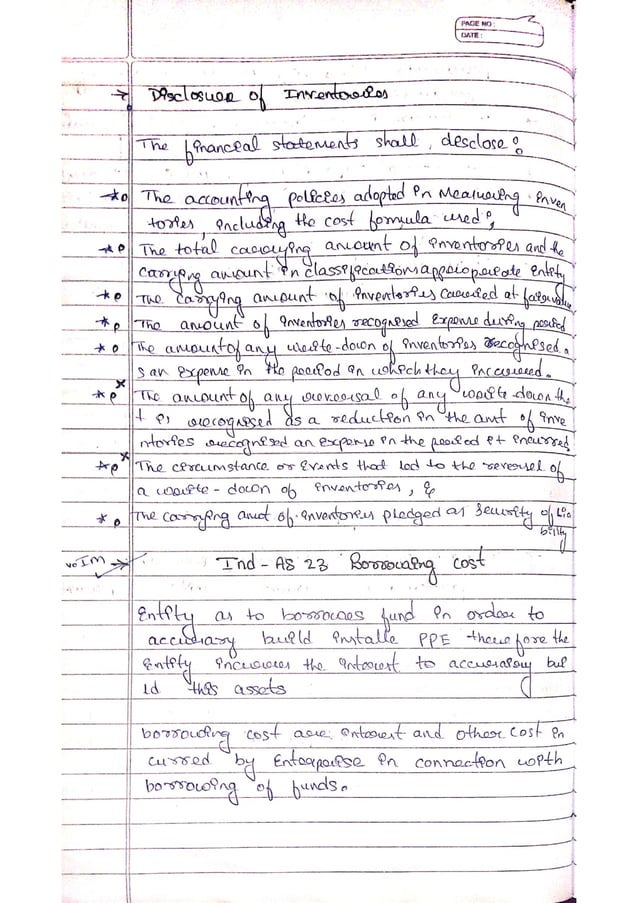 PAGE NO:
DATE:
→ Disclosure of Inventories
The financial statements shall, desclose:
* The accounting policies adopted in Measuring inven
tories, including the cost formula used;
* The total carrying amount of inventories and the
carrying amount in classifications appropriate entity
* The carrying amount of inventories carried at fair value
* The amount of inventories recognised expense during period
* The amount of any write-down of inventories recognised a
s an expense in the period in which they incurred.
* The amount of any reversal of any write-down tha
t is recognised as a reduction in the amt of inve
ntories recognised an expense in the period it incurred
* The circumstance or events that led to the reversel of
a write-down of inventories, &
* The carrying amt of inventories pledged as security of lia
bility
IM → Ind-AS 23 Borrowing cost
Entity as to borrows fund in order to
build installe PPE therefore the
Entity incurres the interest to bui
ld this assets
borrowing cost are interest and other cost in
curred by Enterprise in connection with
borrowing of funds.